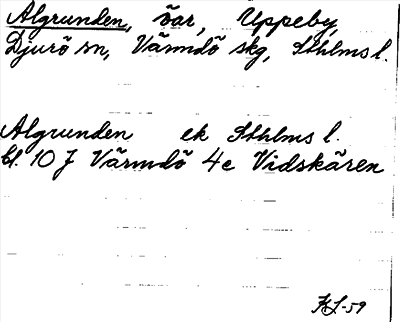 Algrunden, öar, Uppeby,
Djurö sn, Värmdö skg, Sthlms l.
Algrunden ek Sthlms l.
bl. 10 J Värmdö 4c Vidskären
KL-59